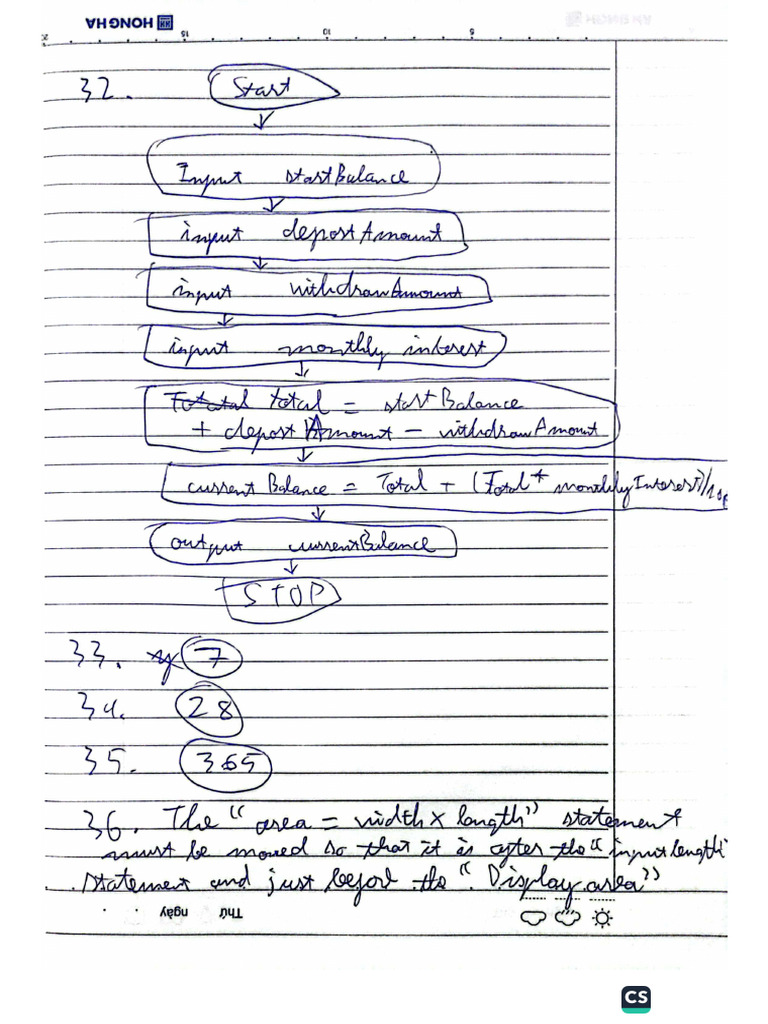 HONG HA
15 10 5
32. Start
Input startBalance
input depostAmount
input withdrawAmount
input monthly interest
Totatal total = startBalance
+ depostAmount - withdrawAmount
currentBalance = Total + (Total * monthlyInterest)/100
output currentBalance
STOP
33. 7
34. 28
35. 365
36. The "area = width x length" statement
must be moved so that it is after the "input length"
statement and just before the "Display area"
Thứ ngày
CS